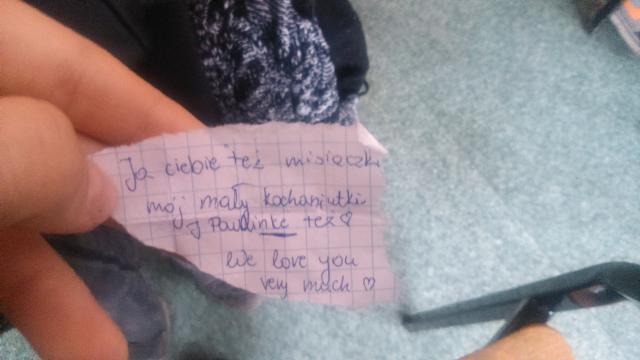 Ja ciebie też misiaczku
mój mały kochaniutki
I Paulinkę też ♡
We love you
very much ♡